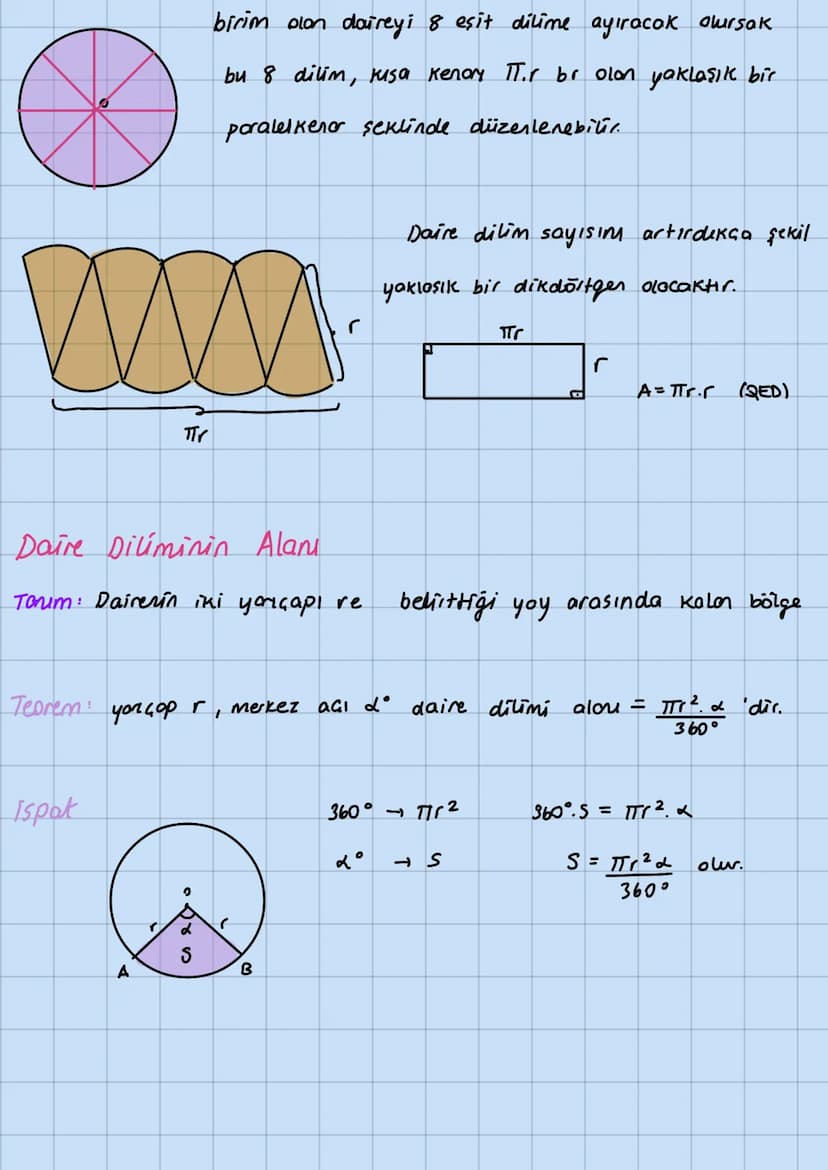 birim olan daireyi 8 eşit dilime ayıracak olursak
bu 8 dilim, kısa kenarı π.r br olan yaklaşık bir
paralelkenar şeklinde düzenlenebilir.
Daire dilim sayısını artırdıkça şekil
yaklaşık bir dikdörtgen olacaktır.
r
πr
πr
r
A = πr.r (QED)
Daire Diliminin Alanı
Tanım: Dairenin iki yarıçapı ve belirttiği yay arasında kalan bölge
Teorem: yarıçap r, merkez açı α° daire dilimi alanı = πr².α/360° 'dir.
İspat
360° → πr²
360°.S = πr².α
α° → S
S = πr²α/360° olur.
O
r
α
r
S
A
B